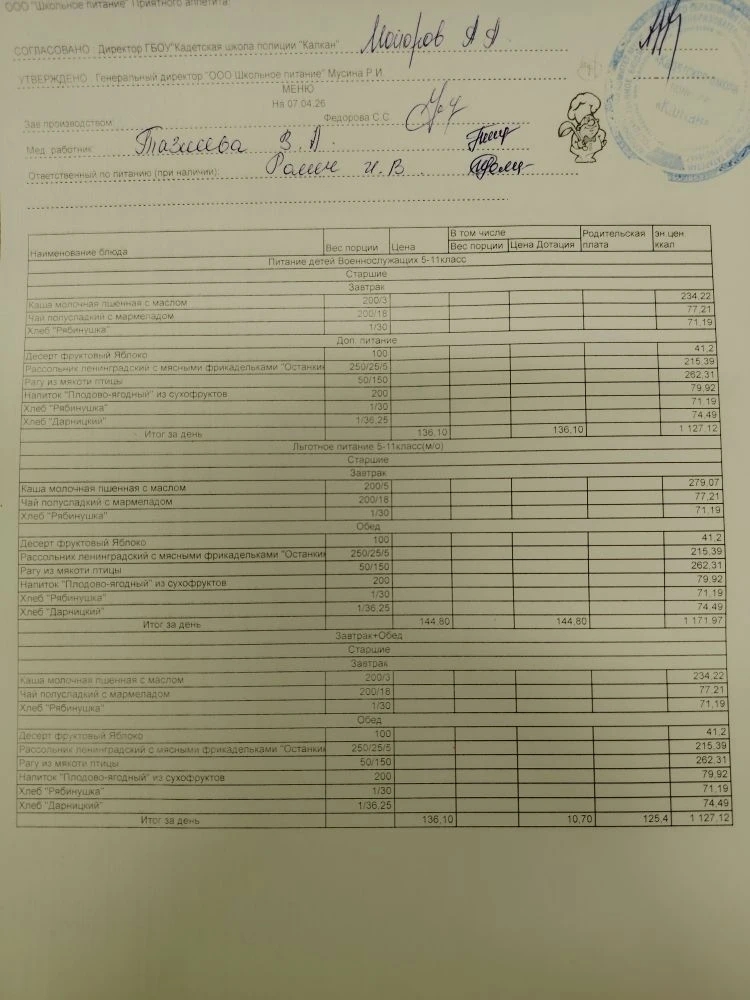 ООО "Школьное питание" Приятного аппетита!
СОГЛАСОВАНО : Директор ГБОУ"Кадетская школа полиции "Калкан"
УТВЕРЖДЕНО : Генеральный директор "ООО Школьное питание" Мусина Р.И.
МЕНЮ
На 07.04.26
Зав.производством: Федорова С.С
Мед. работник:
Ответственный по питанию (при наличии): И. В.
Наименование блюда Вес порции Цена В том числе Вес порции Цена Дотация Родительская плата эн.цен. ккал
Питание детей Военнослужащих 5-11класс
Старшие
Завтрак
Каша молочная пшенная с маслом 200/3 234,22
Чай полусладкий с мармеладом 200/18 77,21
Хлеб "Рябинушка" 1/30 71,19
Доп. питание
Десерт фруктовый Яблоко 100 41,2
Рассольник ленинградский с мясными фрикадельками "Останкин 250/25/5 215,39
Рагу из мякоти птицы 50/150 262,31
Напиток "Плодово-ягодный" из сухофруктов 200 79,92
Хлеб "Рябинушка" 1/30 71,19
Хлеб "Дарницкий" 1/36,25 74,49
Итог за день 136,10 136,10 1 127,12
Льготное питание 5-11класс(м/о)
Старшие
Завтрак
Каша молочная пшенная с маслом 200/5 279,07
Чай полусладкий с мармеладом 200/18 77,21
Хлеб "Рябинушка" 1/30 71,19
Обед
Десерт фруктовый Яблоко 100 41,2
Рассольник ленинградский с мясными фрикадельками "Останкин 250/25/5 215,39
Рагу из мякоти птицы 50/150 262,31
Напиток "Плодово-ягодный" из сухофруктов 200 79,92
Хлеб "Рябинушка" 1/30 71,19
Хлеб "Дарницкий" 1/36,25 74,49
Итог за день 144,80 144,80 1 171,97
Завтрак+Обед
Старшие
Завтрак
Каша молочная пшенная с маслом 200/3 234,22
Чай полусладкий с мармеладом 200/18 77,21
Хлеб "Рябинушка" 1/30 71,19
Обед
Десерт фруктовый Яблоко 100 41,2
Рассольник ленинградский с мясными фрикадельками "Останкин 250/25/5 215,39
Рагу из мякоти птицы 50/150 262,31
Напиток "Плодово-ягодный" из сухофруктов 200 79,92
Хлеб "Рябинушка" 1/30 71,19
Хлеб "Дарницкий" 1/36,25 74,49
Итог за день 136,10 10,70 125,4 1 127,12